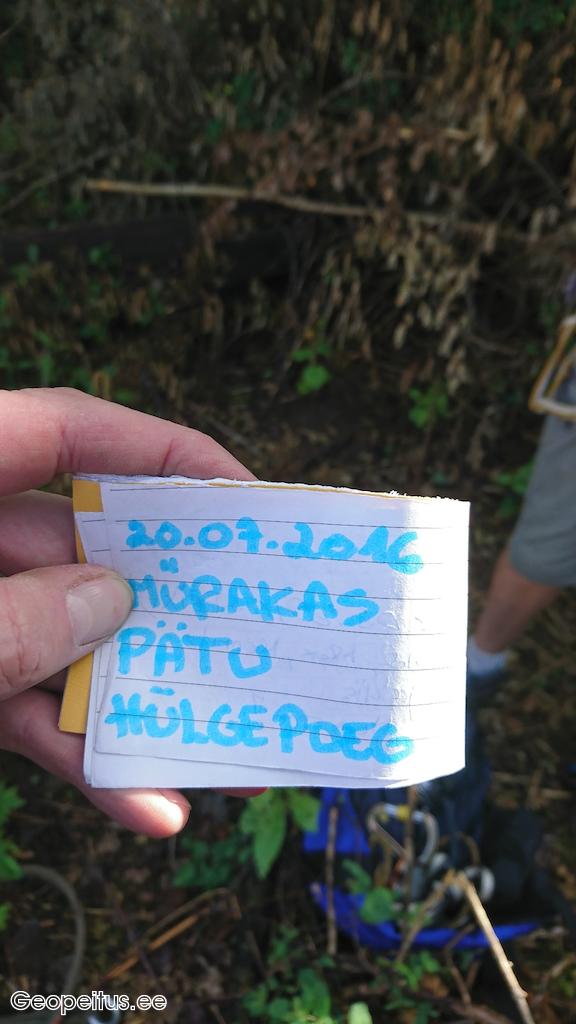 20.07.2016
MÜRAKAS
PÄTU
HÜLGEPOEG
Geopeitus.ee